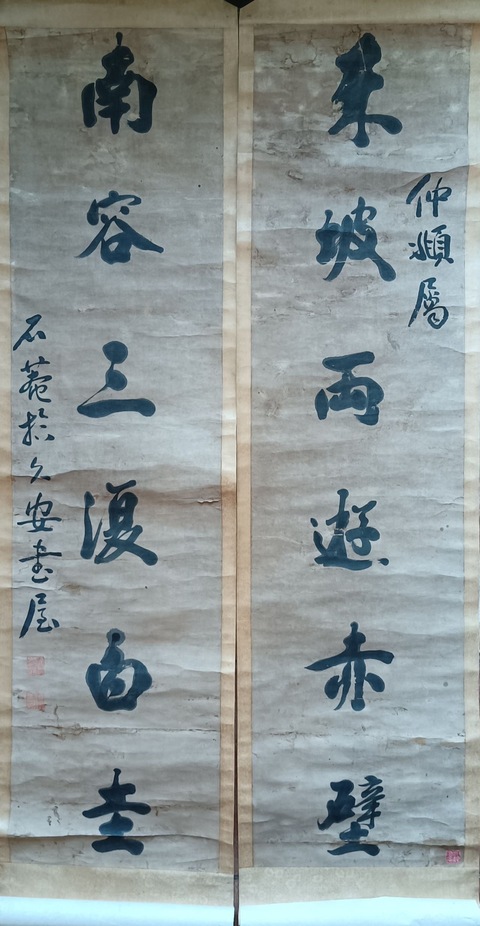 仲屬
東坡兩遊赤壁
南容三復白圭
石菴於久安書屋